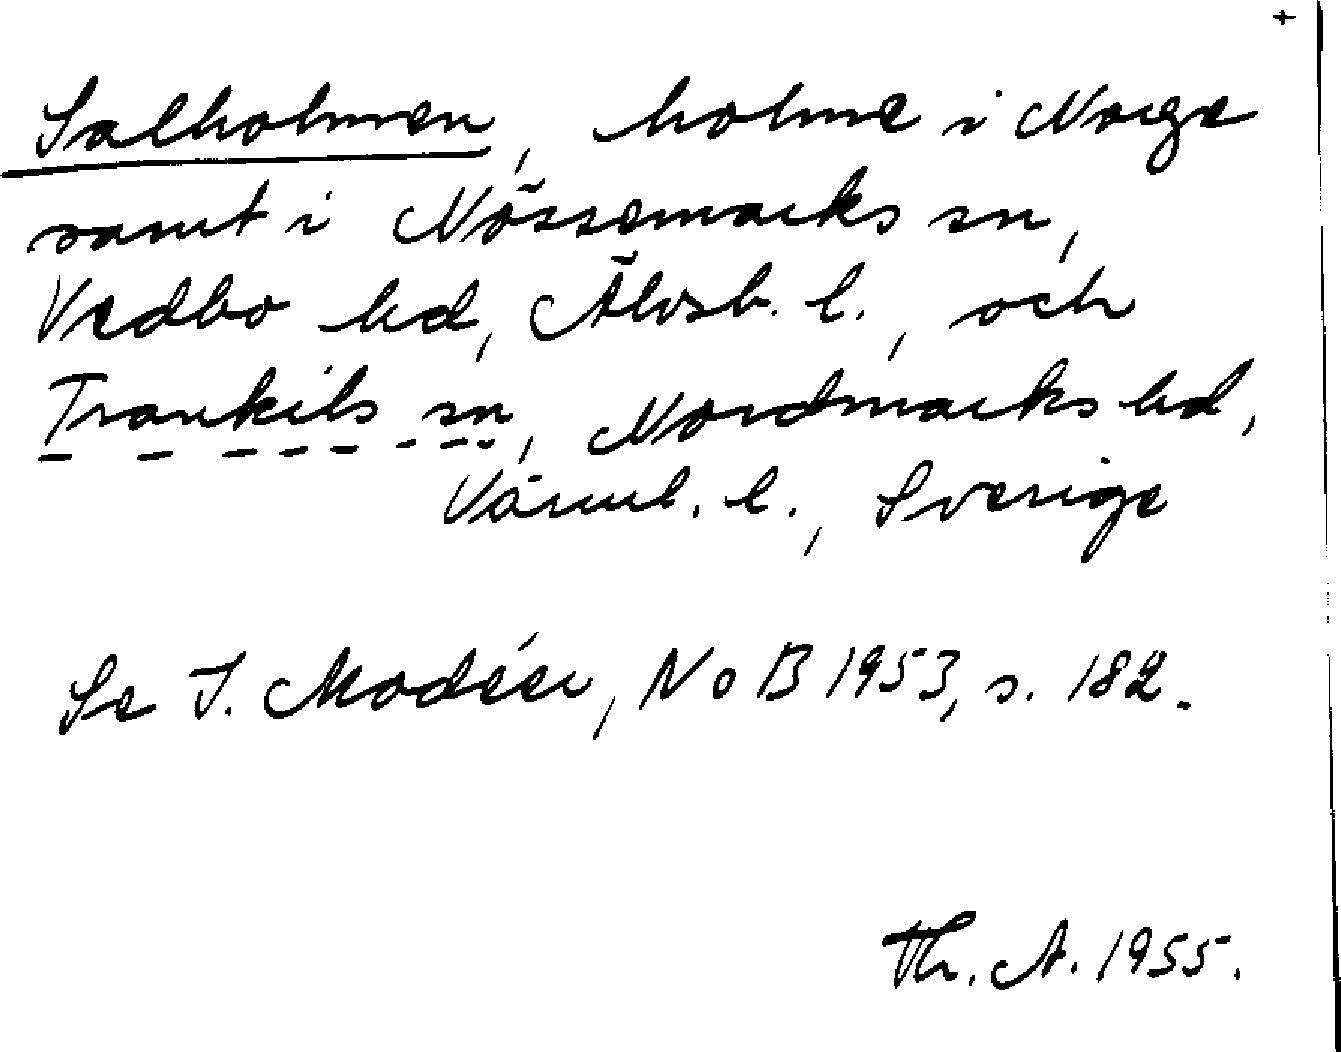 +
Salholmen, holme i Norge
samt i Nössemarks sn,
Vedbo hd, Älvsb. l., och
Trankils sn, Nordmarks hd,
Värml. l., Sverige
Se I. Modéer, NoB 1953, s. 182.
Th. A. 1955.